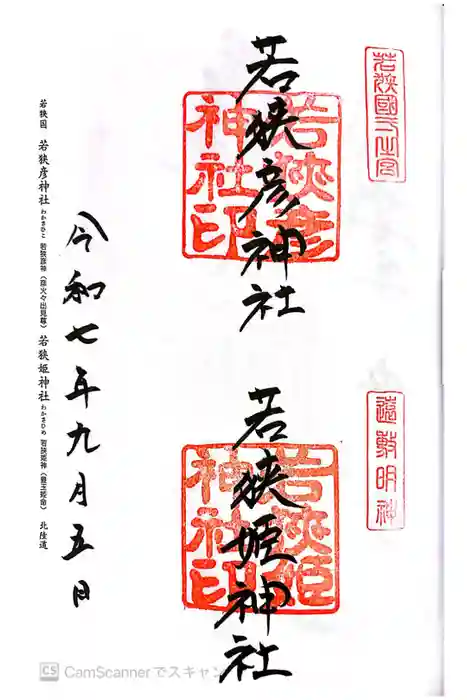 若狭國一之宮
若狭彦神社
若狭彦
神社印
遠敷明神
若狭姫神社
若狭姫
神社印
令和七年九月五日
若狭国 若狭彦神社 わかさひこ 若狭彦神(彦火々出見尊) 若狭姫神社 わかさひめ 若狭姫神(豊玉姫命) 北陸道
CS CamScannerでスキャン